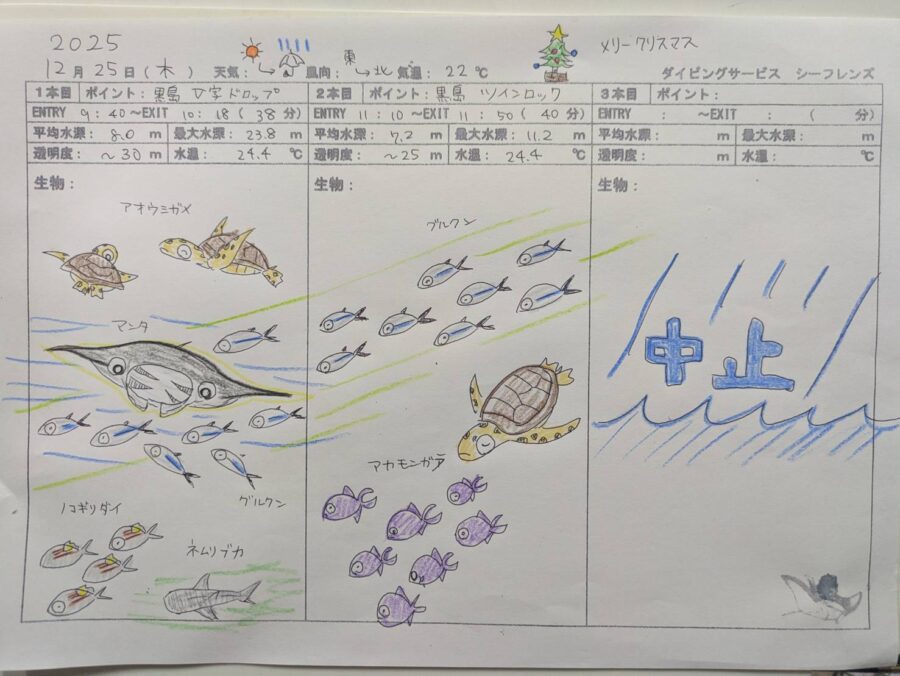 2025
メリークリスマス
12月 25日(木) 天気: 風向: 東→北 気温: 22℃
ダイビングサービス シーフレンズ
1本目 ポイント: 黒島 V字ドロップ
ENTRY 9:40～EXIT 10:18 (38分)
平均水深: 8.0 m 最大水深: 23.8 m
透明度: ～30 m 水温: 24.4 ℃
生物:
アオウミガメ
マンタ
グルクン
ノコギリダイ
ネムリブカ
2本目 ポイント: 黒島 ツインロック
ENTRY 11:10～EXIT 11:50 (40分)
平均水深: 7.2 m 最大水深: 11.2 m
透明度: ～25 m 水温: 24.4 ℃
生物:
グルクン
アカモンガラ
3本目 ポイント:
ENTRY : ～EXIT : ( 分)
平均水深: m 最大水深: m
透明度: m 水温: ℃
生物:
中止